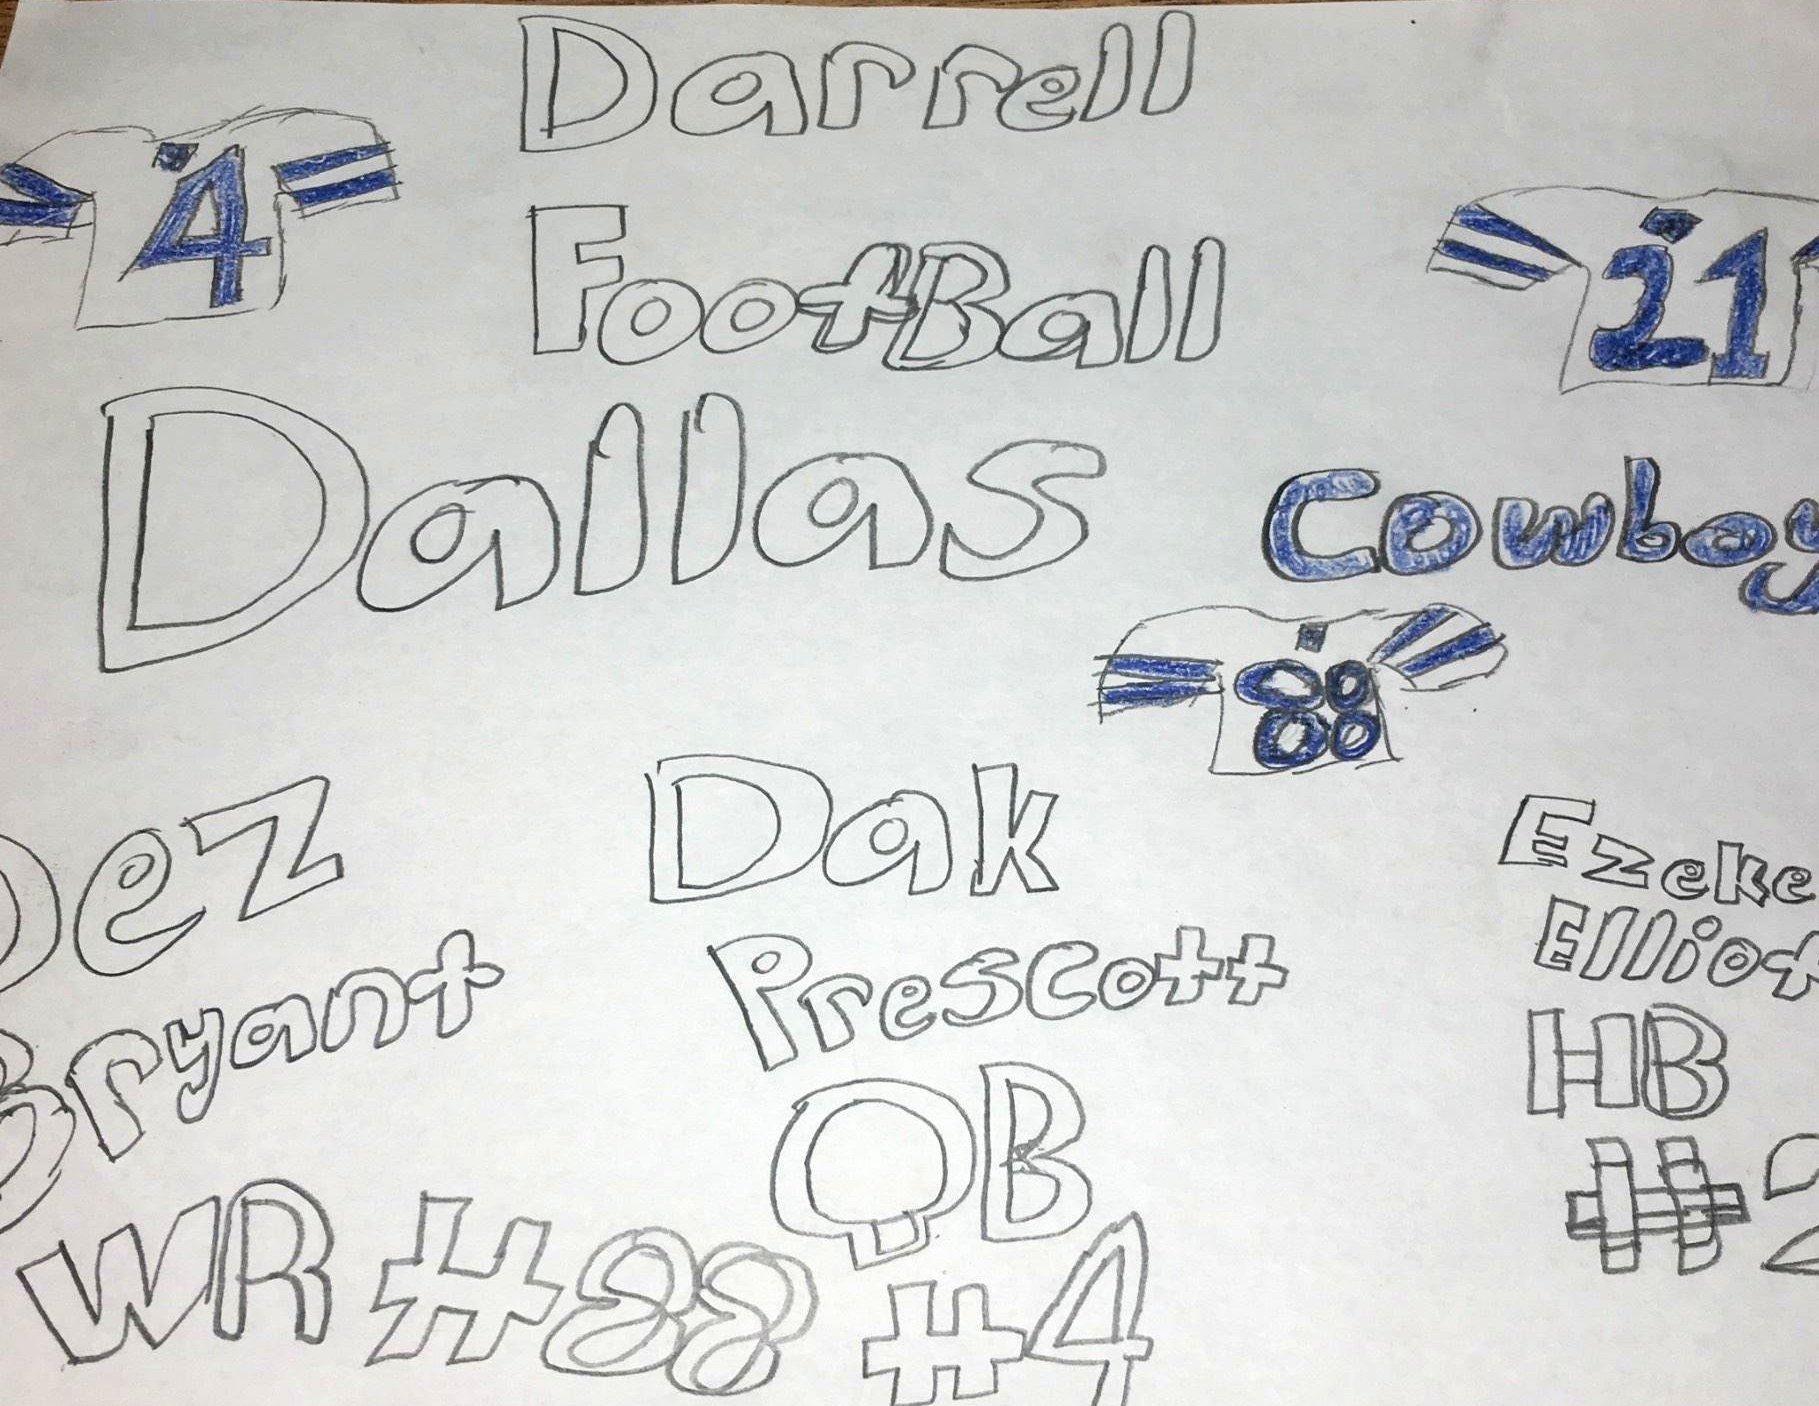 Darrell
4
FootBall
21
Dallas
Cowboy
88
Dez
Bryant
WR #88
Dak
Prescott
QB
#4
Ezeke
Elliot
HB
#2